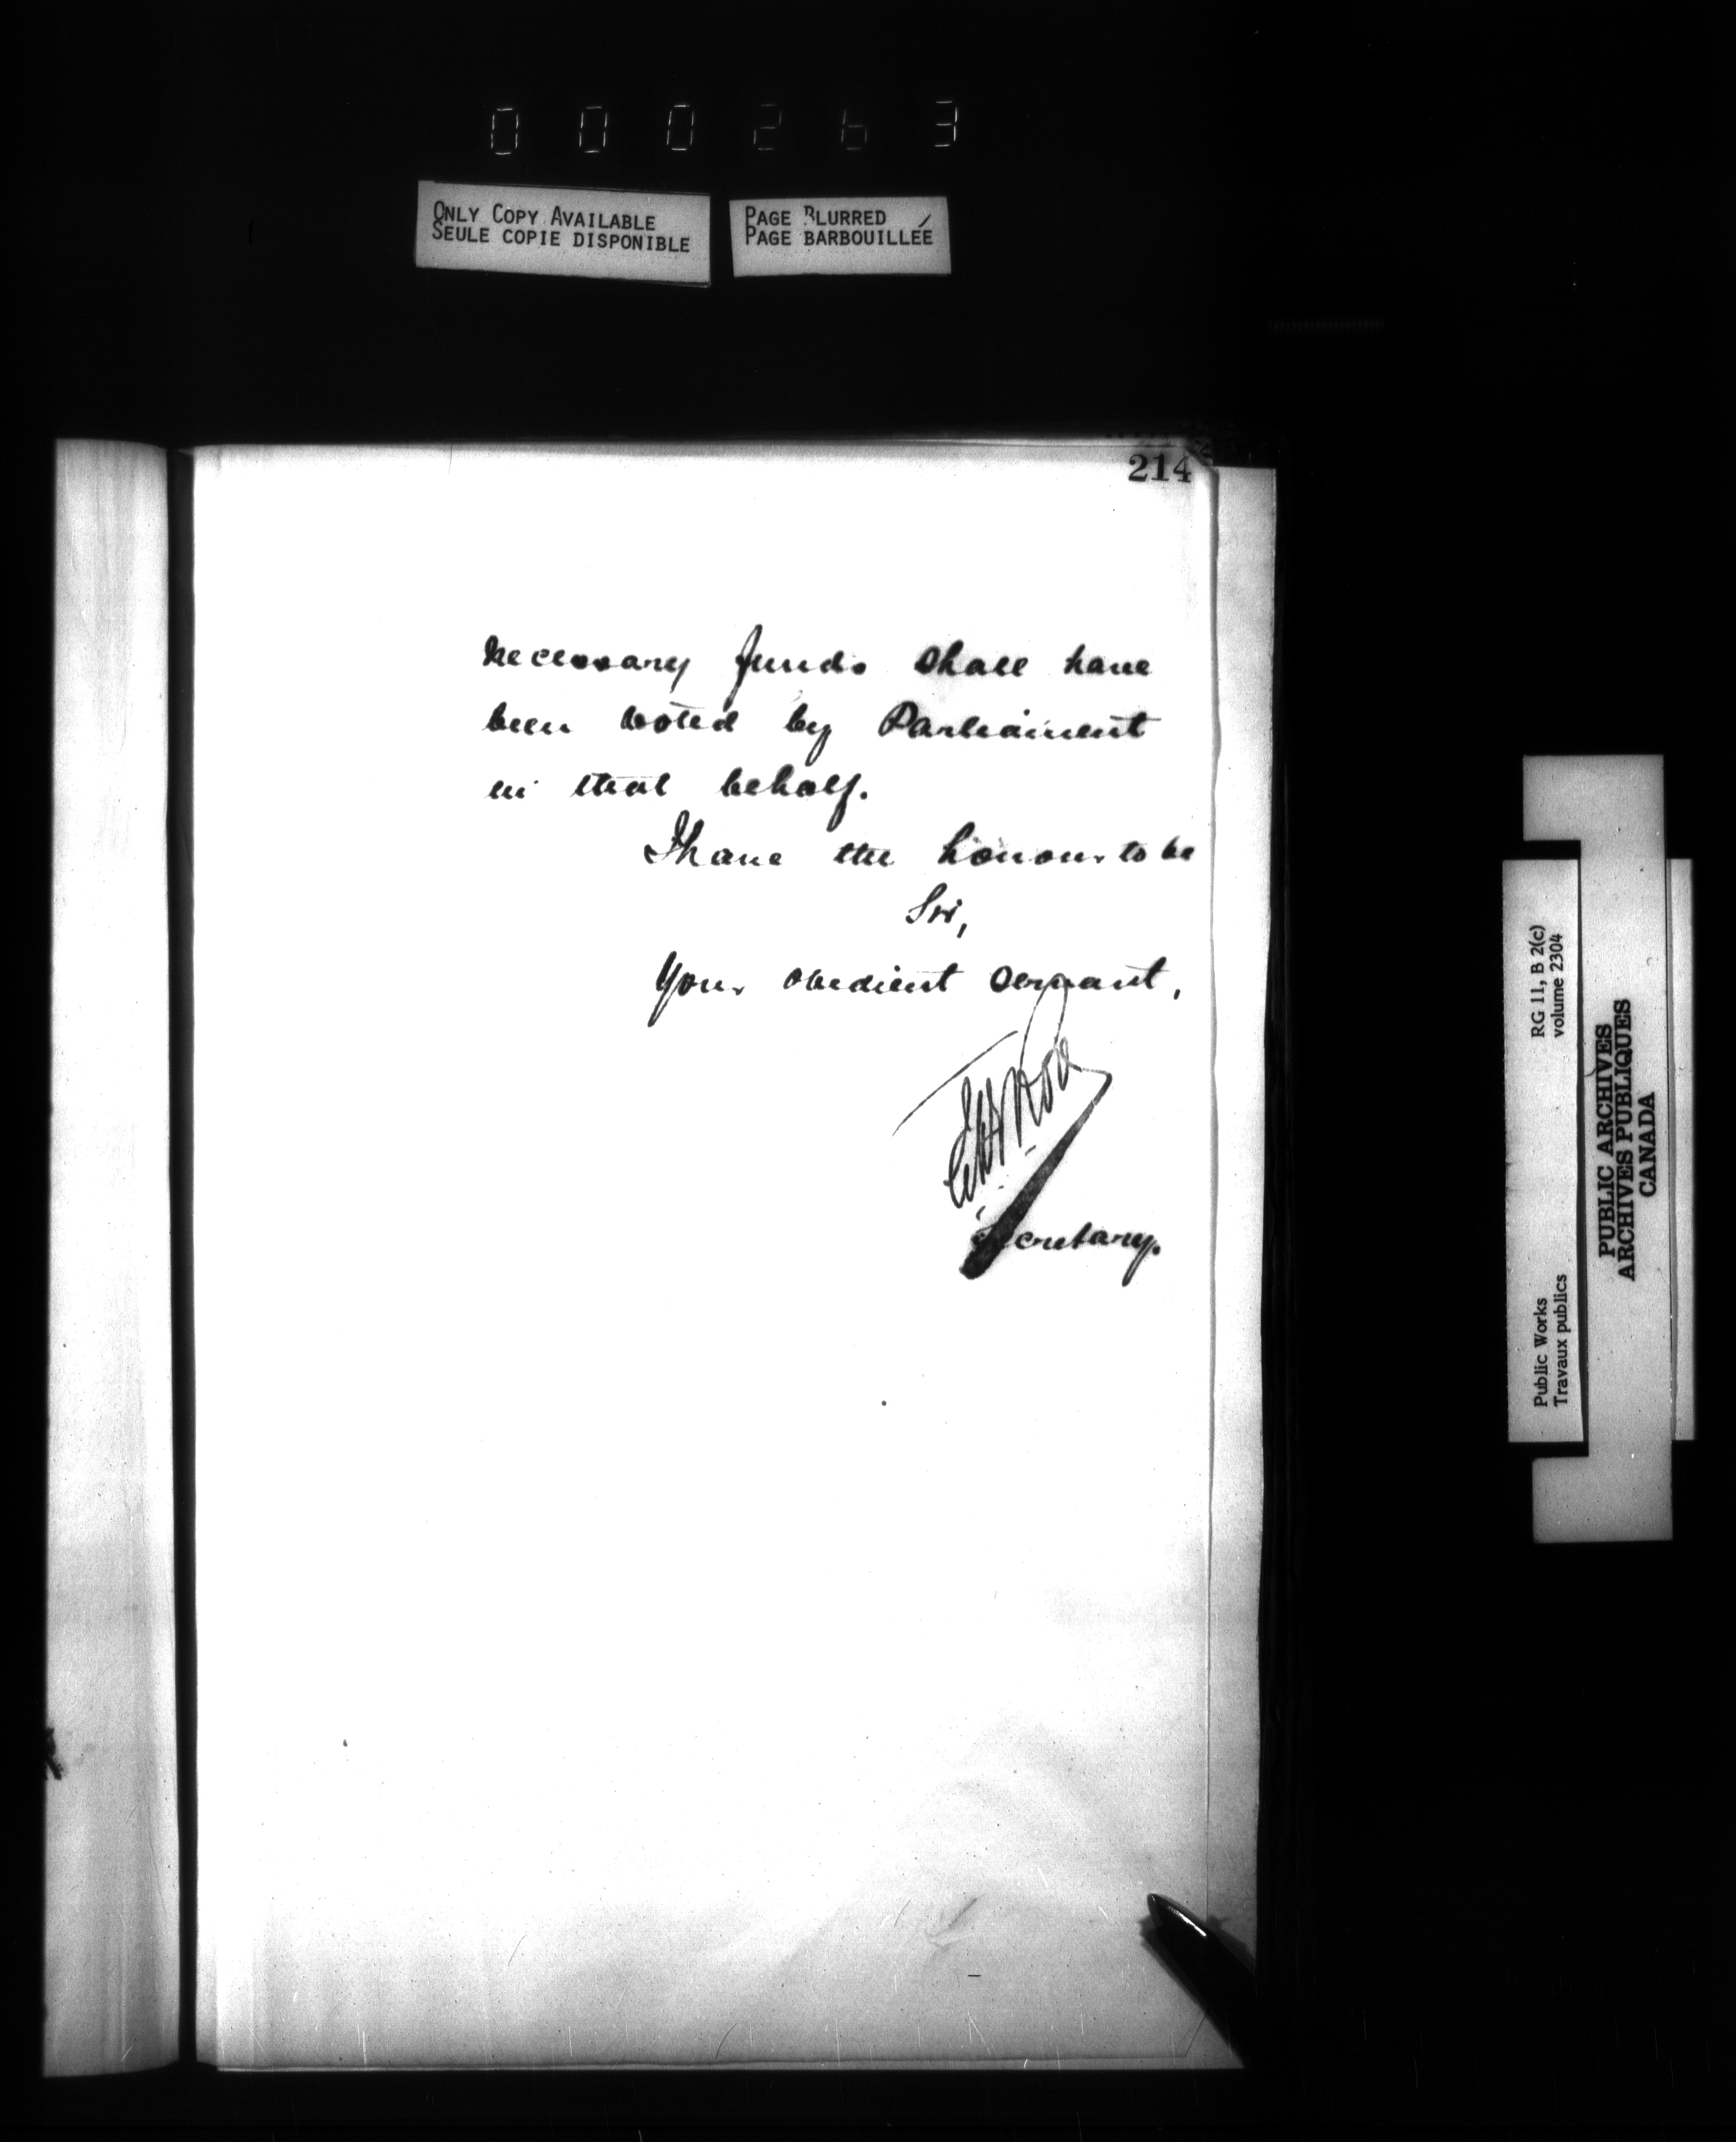 000263
ONLY COPY AVAILABLE
SEULE COPIE DISPONIBLE
PAGE BLURRED
PAGE BARBOUILLÉE
214
necessary funds shall have
been voted by Parliament
in that behalf.
I have the honour to be
Sir,
Your obedient servant,
Secretary.
RG 11, B 2(c)
volume 2304
Public Works
Travaux publics
PUBLIC ARCHIVES
ARCHIVES PUBLIQUES
CANADA